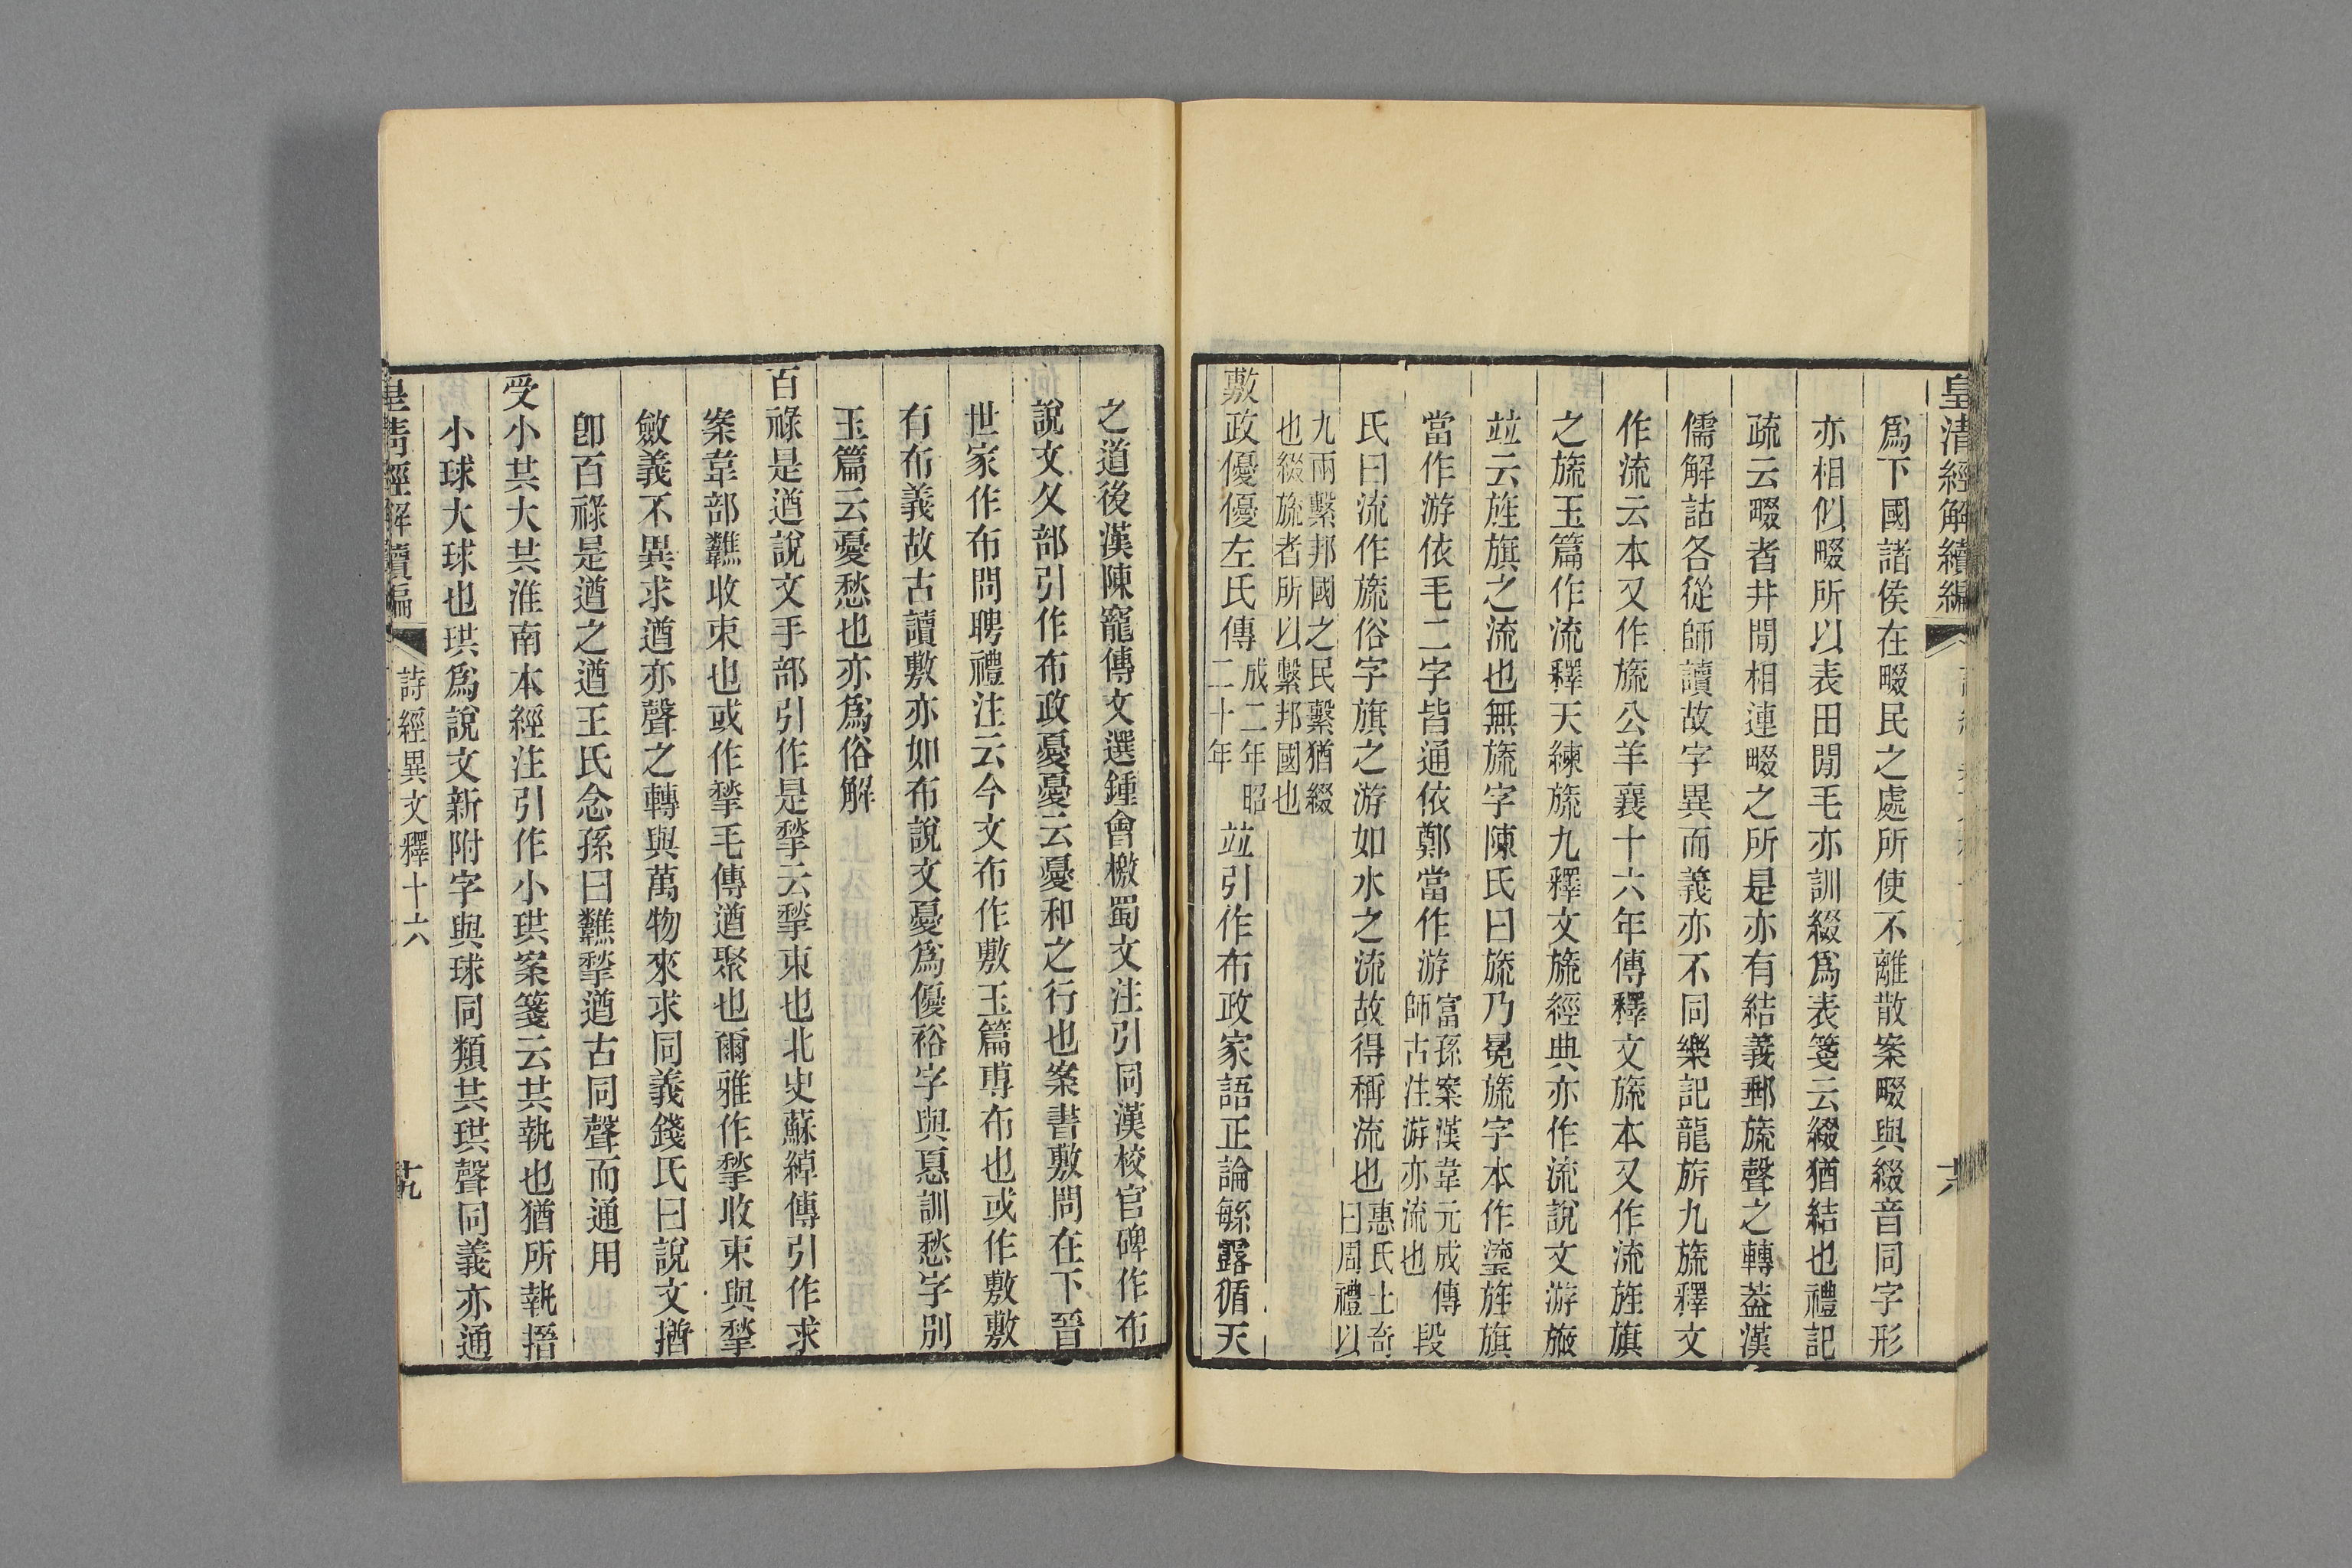 皇清經解續編
六
爲下國諸侯在畷民之處所使不離散案畷與綴音同字形
亦相似畷所以表田閒毛亦訓綴爲表箋云綴猶結也禮記
疏云畷者井閒相連畷之所是亦有結義郵旒聲之轉葢漢
儒解詁各從師讀故字異而義亦不同樂記龍旂九旒釋文
作流云本又作旒公羊襄十六年傳釋文旒本又作流旌旗
之旒玉篇作流釋天練旒九釋文旒經典亦作流說文游旌
竝云旌旗之流也無旒字陳氏曰旒乃冕旒字本作瑬旌旗
當作游依毛二字皆通依鄭當作游富孫案漢韋元成傳師古注游亦流也段
氏曰流作旒俗字旗之游如水之流故得稱流也惠氏士奇曰周禮以
九兩繫邦國之民繫猶綴也綴旒者所以繫邦國也
敷政優優左氏傳成二年昭二十年竝引作布政家語正論緐露循天
之道後漢陳寵傳文選鍾會檄蜀文注引同漢校官碑作布
說文夊部引作布政憂憂云憂和之行也案書敷問在下晉
世家作布問聘禮注云今文布作敷玉篇尃布也或作敷敷
有布義故古讀敷亦如布說文憂爲優裕字與惪訓愁字別
玉篇云憂愁也亦爲俗解
百祿是遒說文手部引作是揫云揫束也北史蘇綽傳引作求
案韋部𩏷收束也或作揫毛傳遒聚也爾雅作揫收束與揫
斂義不異求遒亦聲之轉與萬物來求同義錢氏曰說文揂
卽百祿是遒之遒王氏念孫曰𩏷揫遒古同聲而通用
受小共大共淮南本經注引作小珙案箋云共執也猶所執搢
小球大球也珙爲說文新附字與球同類共珙聲同義亦通
皇清經解續編
詩經異文釋十六
十九